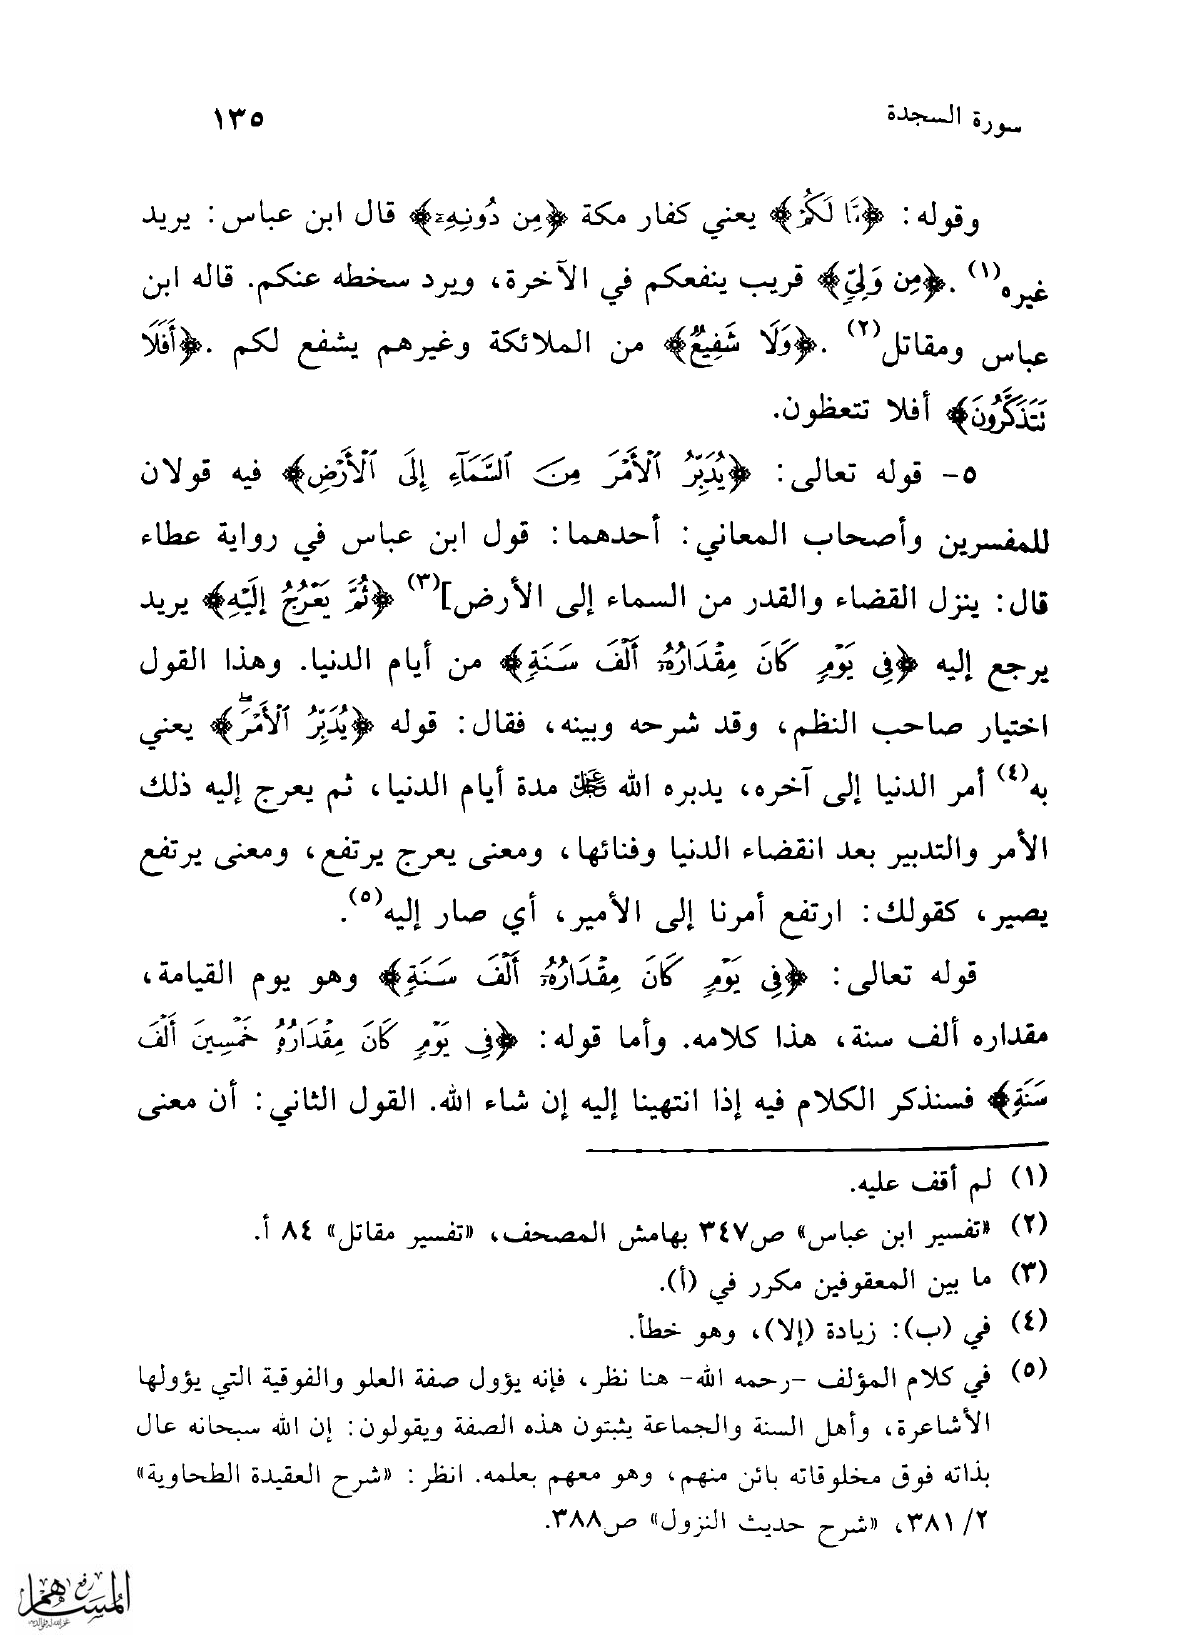 سورة السجدة ١٣٥
وقوله: ﴿مَا لَكُمْ﴾ يعني كفار مكة ﴿مِن دُونِهِۦ﴾ قال ابن عباس: يريد
غيره(١). ﴿مِن وَلِيٍّ﴾ قريب ينفعكم في الآخرة، ويرد سخطه عنكم. قاله ابن
عباس ومقاتل(٢). ﴿وَلَا شَفِيعٍ﴾ من الملائكة وغيرهم يشفع لكم. ﴿أَفَلَا
تَتَذَكَّرُونَ﴾ أفلا تتعظون.
٥- قوله تعالى: ﴿يُدَبِّرُ ٱلْأَمْرَ مِنَ ٱلسَّمَآءِ إِلَى ٱلْأَرْضِ﴾ فيه قولان
للمفسرين وأصحاب المعاني: أحدهما: قول ابن عباس في رواية عطاء
قال: ينزل القضاء والقدر من السماء إلى الأرض](٣) ﴿ثُمَّ يَعْرُجُ إِلَيْهِ﴾ يريد
يرجع إليه ﴿فِى يَوْمٍ كَانَ مِقْدَارُهُۥٓ أَلْفَ سَنَةٍ﴾ من أيام الدنيا. وهذا القول
اختيار صاحب النظم، وقد شرحه وبينه، فقال: قوله ﴿يُدَبِّرُ ٱلْأَمْرَۖ﴾ يعني
به(٤) أمر الدنيا إلى آخره، يدبره الله عز وجل مدة أيام الدنيا، ثم يعرج إليه ذلك
الأمر والتدبير بعد انقضاء الدنيا وفنائها، ومعنى يعرج يرتفع، ومعنى يرتفع
يصير، كقولك: ارتفع أمرنا إلى الأمير، أي صار إليه(٥).
قوله تعالى: ﴿فِى يَوْمٍ كَانَ مِقْدَارُهُۥٓ أَلْفَ سَنَةٍ﴾ وهو يوم القيامة،
مقداره ألف سنة، هذا كلامه. وأما قوله: ﴿فِى يَوْمٍ كَانَ مِقْدَارُهُۥ خَمْسِينَ أَلْفَ
سَنَةٍ﴾ فسنذكر الكلام فيه إذا انتهينا إليه إن شاء الله. القول الثاني: أن معنى
(١) لم أقف عليه.
(٢) «تفسير ابن عباس» ص٣٤٧ بهامش المصحف، «تفسير مقاتل» ٨٤ أ.
(٣) ما بين المعقوفين مكرر في (أ).
(٤) في (ب): زيادة (إلا)، وهو خطأ.
(٥) في كلام المؤلف -رحمه الله- هنا نظر، فإنه يؤول صفة العلو والفوقية التي يؤولها
الأشاعرة، وأهل السنة والجماعة يثبتون هذه الصفة ويقولون: إن الله سبحانه عال
بذاته فوق مخلوقاته بائن منهم، وهو معهم بعلمه. انظر: «شرح العقيدة الطحاوية»
٢/ ٣٨١، «شرح حديث النزول» ص٣٨٨.
رفع
المساهم